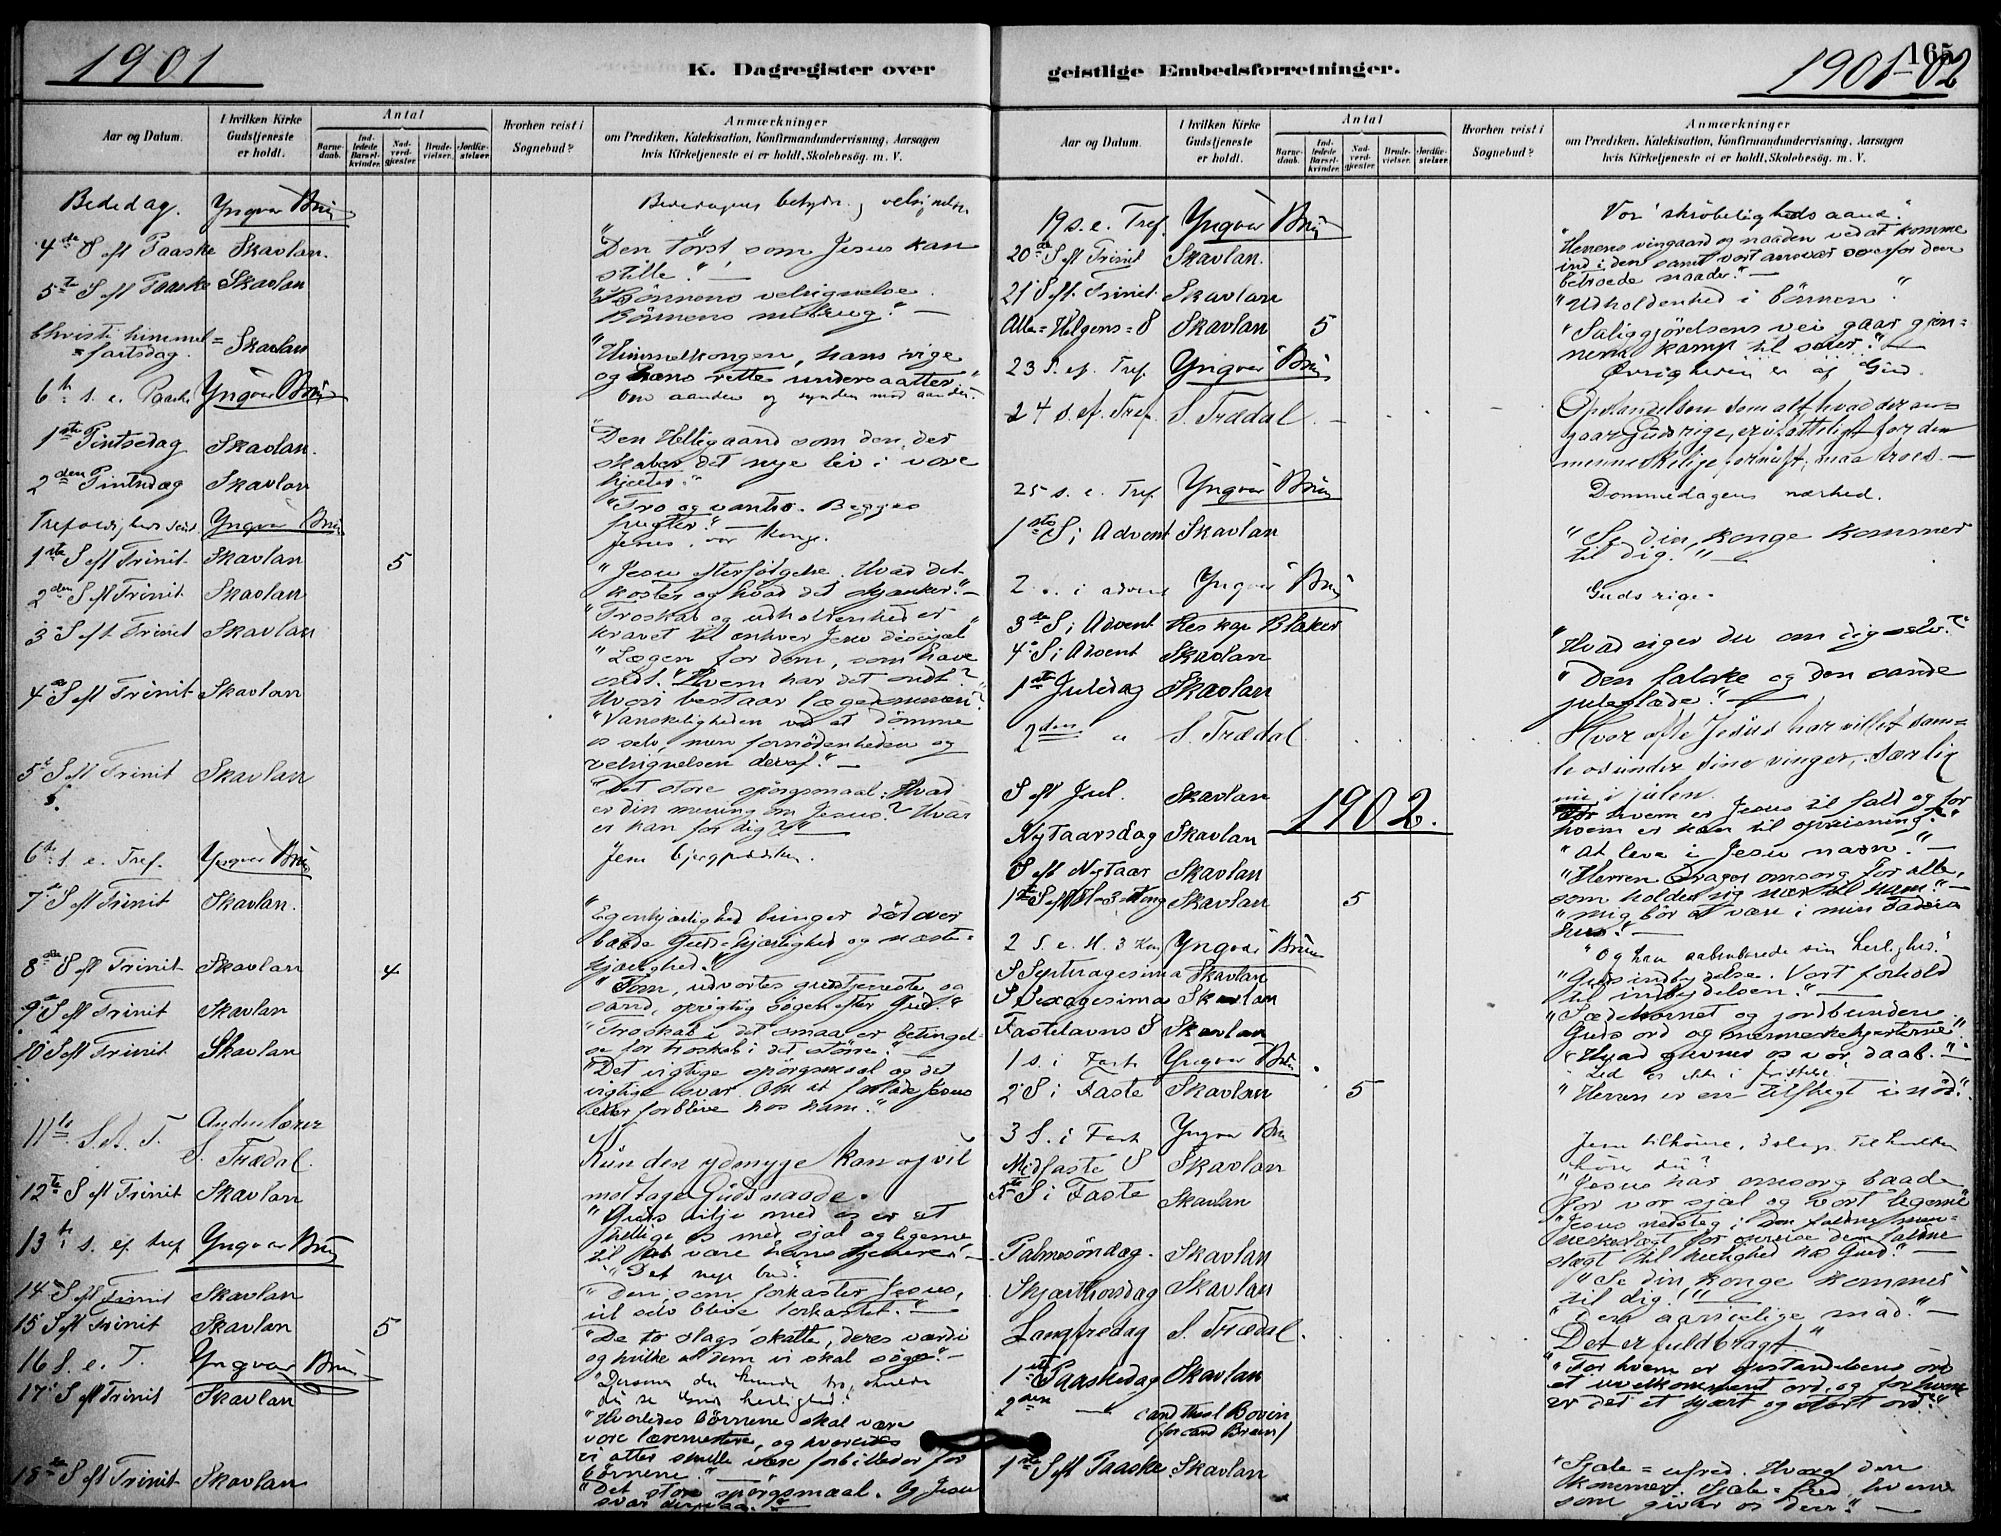 1901
K. Dagregister over
Aar og Datum.
I hvilken Kirke Gudstjeneste er holdt.
Antal
Barne- daab.
Ind- ledede Barsel- kvinder.
Nad- verd- gjester.
Brude- vielser.
Jordfæ- stelser.
Hvorhen reist i Sognebud?
Anmærkninger
om Prædiken, Katekisation, Konfirmandundervisning, Aarsagen
hvis Kirketjeneste ei er holdt, Skolebesög. m. V.
Bededag. Yngvar Brun
4de S eft Paaske Skavlan. "Den törst, som Jesus kan
stille." —
5te S eft Paaske Skavlan "Bönnens velsignelse.
Bönnens misbrug." —
Christi himmel=
fartsdag. Skavlan "Himmelkongen, hans rige
og hans rette undersaatter"
6te s. e. Paaske Yngvar Brun
1ste Pintsedag Skavlan. "Den Helligaand som den, der
skaber det nye liv i vore
hjerter."
2den Pintsdag Skavlan "Tro og vantro. Begges
frugter." —
Yngvar Brun Jesus, vor Konge.
1ste S eft Trinit Skavlan 5 "Jesu efterfölgelse. Hvad det
koster og hvad det skjænker." —
2den S eft Trinit Skavlan "Troskab og udholdenhed er
kravet til enhver Jesu discipel"
3 S eft Trinit Skavlan "Lægen for dem, som have
ondt. Hvem har det ondt?
4 S eft Trinit Skavlan "Vanskeligheden ved at dömme
os selv, men fornödenheden og
velsignelsen deraf." —
5te S eft Trinit Skavlan "Det store spörgsmaal: Hvad
er din mening om Jesus? Hvad
er han for dig?" —
6te s. e. Tref. Yngvar Brun Jesu bjergprædiken.
7de S eft Trinit Skavlan. "Egenkjærlighed bringer död over
baade Guds-kjærlighed og næste-
kjærlighed."
8de S eft Trinit Skavlan 4 "Tom, udvortes gudstjeneste og
sand, oprigtig sögen efter Gud."
9de S eft Trinit Skavlan "Troskab i det smaa er betingel-
se for troskab i det större." —
10 S eft Trinit Skavlan "Det vigtige spörgsmaal og det
vigtige svar. Om at forlade Jesus
eller forblive hos ham."
11te S. e. T. Andenlærer
S. Trædal. Kun den ydmyge kan og vil
modtage Guds naade.
12te S eft Trinit Skavlan "Guds vilje med os er at
hellige os med sjæl og legeme
til at være hans tjenere" —
13de s. ef. tref Yngvar Brun "Det nye bud."
14 S eft Trinit Skavlan "Den, som forkaster Jesus,
vil selv blive forkastet." —
15 S eft Trinit Skavlan 5 "De to slags skatte, deres værdi
og hvilke af dem vi skal söge." —
16 S. e. T. Yngvar Brun "Dersom du kunde tro, skulde
du se Guds herlighed."
17 S eft Trinit Skavlan "Hvorledes börnene skal være
vore læremestere, og hvorledes
vi atter skulle være forbilleder for
börnene." —
18de S eft Trinit Skavlan "Det store spörgsmaal. Og Jesu
svar derpaa." —
165
1901-02
geistlige Embedsforretninger.
Aar og Datum.
I hvilken Kirke Gudstjeneste er holdt.
Antal
Barne- daab.
Ind- ledede Barsel- kvinder.
Nad- verd- gjester.
Brude- vielser.
Jordfæ- stelser.
Hvorhen reist i Sognebud?
Anmærkninger
om Prædiken, Katekisation, Konfirmandundervisning, Aarsagen
hvis Kirketjeneste ei er holdt, Skolebesög. m. V.
19 s. e. Tref. Yngvar Brun Vor skröbeligheds aand."
20de S eft Trinit Skavlan. "Herrens vingaard og naaden ved at komme
ind i den samt vort ansvar overfor den
betroede naade." —
21 S eft. Trinit Skavlan "Udholdenhed i bönnen."
Alle=Helgens=S Skavlan 5 "Saliggjörelsens vei gaar gjen=
nem kamp til seier." —
23 S. ef. Tref. Yngvar Brun Övrigheden er af Gud.
24 s. ef. Tref. S. Trædal Opstandelsen som alt hvad der an=
gaar Guds rige, er ufatteligt for den
menneskelige fornuft, maa troes. —
25 s. e. Tref. Yngvar Brun Dommedagens nærhed.
1ste S i Advent Skavlan "Se din konge kommer
til dig." —
2 s. i advent Yngvar Brun Guds rige.
3de S i Advent Res kap Blaker "Hvad siger du om dig selv?"
4 S i Advent Skavlan
1ste Juledag Skavlan "Den falske og den sande
juleglæde." —
2den " S. Trædal. Hvor ofte Jesus har villet sam=
le os under sine vinger, særlig
nu i julen.
S eft Jul. Skavlan hvem er Jesus til fald og for
hvem er han til opreisning?"
1902.
Nytaarsdag Skavlan "At leve i Jesu navn." —
S eft Nytaar Skavlan "Herren drager omsorg for alle,
som holder sig nær til ham." —
1ste S eft H-3-Kong Skavlan 5 "Mig bör at være i min Faders
hus." —
2 S. e. H. 3 Kon Yngvar Brun "Og han aabenbarede sin herlighed."
S Septuagesima Skavlan "Guds indbydelse. Vort forhold
til indbydelsen." —
S Sexagesima Skavlan "Sædekornet og jordbunden.
Guds ord og menneskehjerterne"
Fastelavns S Skavlan "Hvad skjænker os vor daab." —
1 s. i Fast Yngvar Brun
2 S i Faste Skavlan 5 "Herren er en tilflugt i nöd."
3 S. i Fast Yngvar Brun
Midfaste S Skavlan "Jesus har omsorg baade
for vor sjæl og vort legeme"
5te S i Faste Skavlan
Palmesöndag. Skavlan "Se din konge kommer
til dig!" —
Skjærthorsdag Skavlan
Langfredag S. Trædal. Det er fuldbragt."
1ste Paaskedag Skavlan "For hvem er opstandelsens ord
et uvelkomment ord, og for hvem
er det et kjært og stort ord?"
2den — cand theol Bovin
(for cand Brun)
1ste S eft Paaske Skavlan "Sjæle=ufred. Hvoraf den
kommer. Sjæle=fred, hvem
som giver os den." —